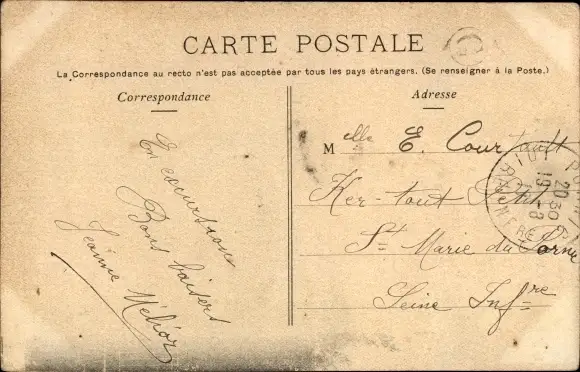 CARTE POSTALE
La Correspondance au recto n'est pas acceptée par tous les pays étrangers. (Se renseigner à la Poste.)
Correspondance
En excursion
Bons baisers
Jeanne
Adresse
Melle E. Courtault
Ker-tout Petit
Ste Marie du
Seine Infre
20 30